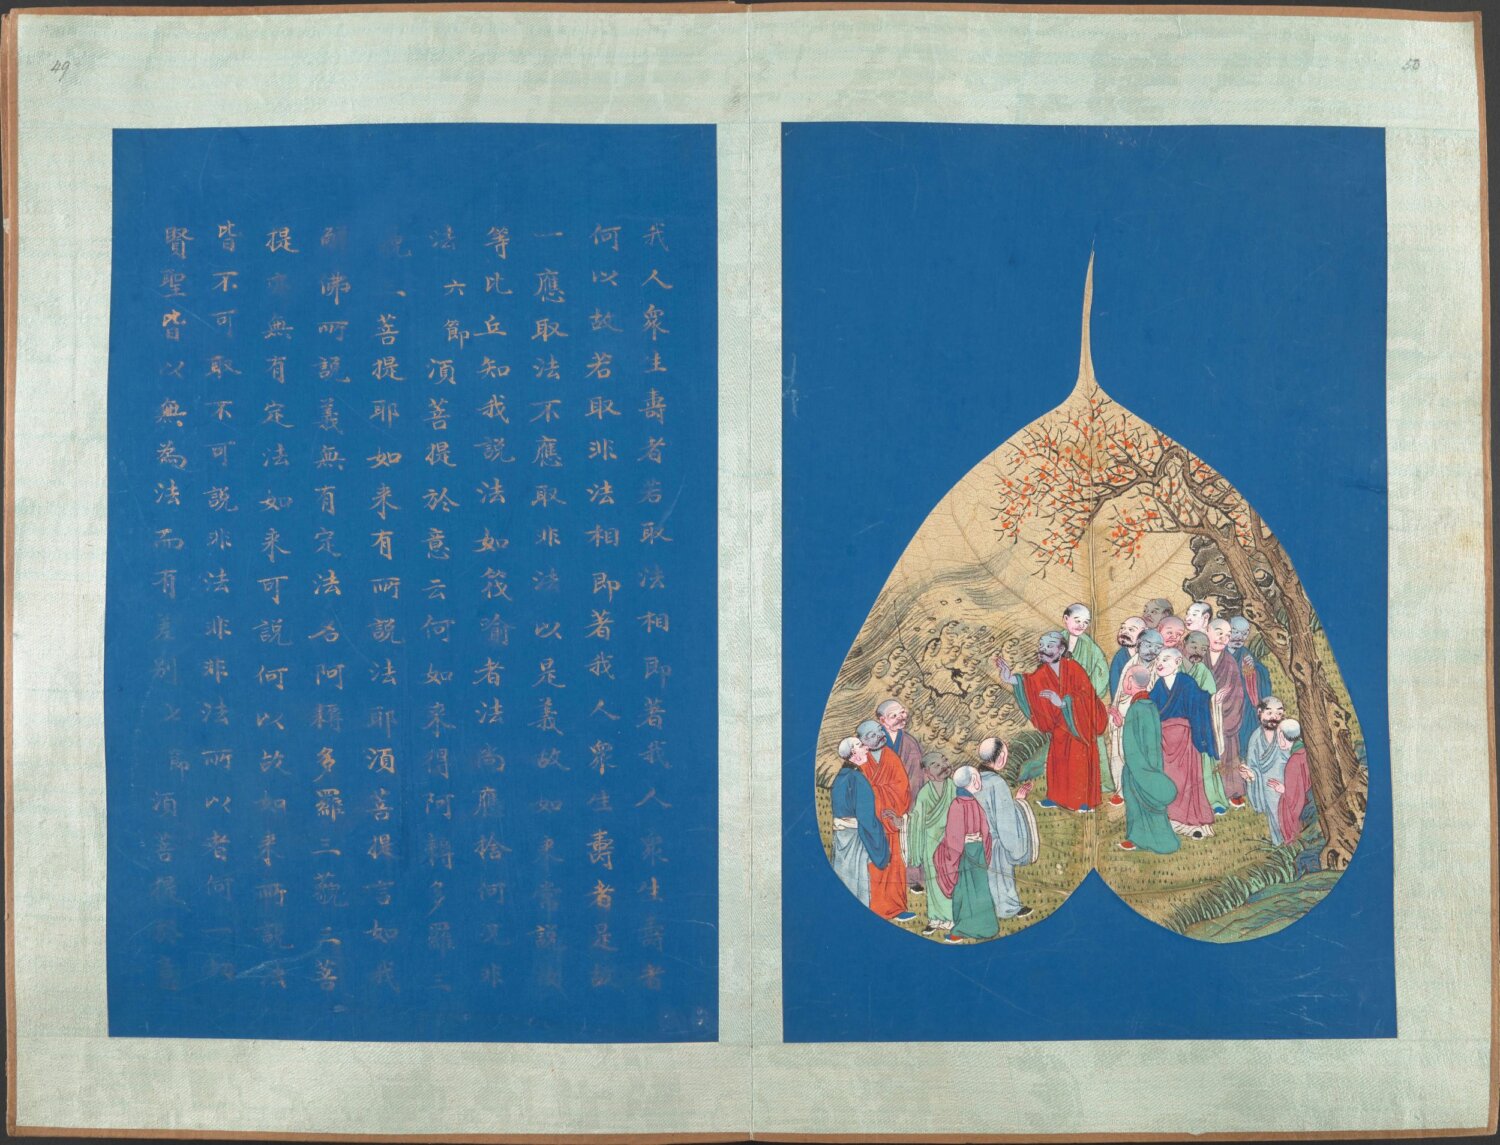 49
50
我人衆生壽者若取法相即著我人衆生壽者
何以故若取非法相即著我人衆生壽者是故
一應取法不應取非法以是義故如来常說
等比丘知我說法如筏喻者法尚應捨何況非
法 六節 湏菩提於意云何如来得阿耨多羅三
菩提耶如来有所説法耶湏菩提言如我
佛所説義無有定法名阿耨多羅三藐三菩
提亦無有定法如来可説何以故如来所説法
皆不可取不可説非法非非法所以者何一切
賢聖皆以無為法而有差别 七節 湏菩提於意